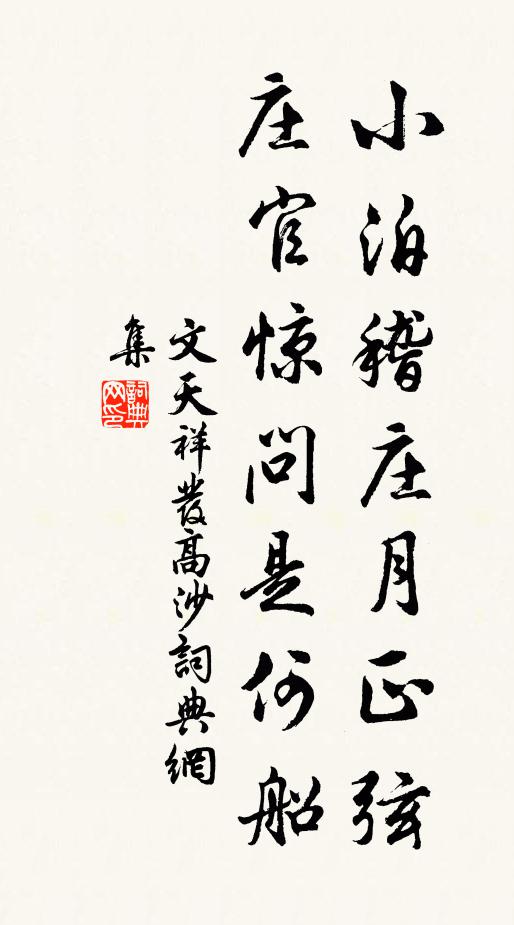 小泊稽庄月正弦
庄官惊問是何船
文天祥發高沙詞典網
集
詞典
网印